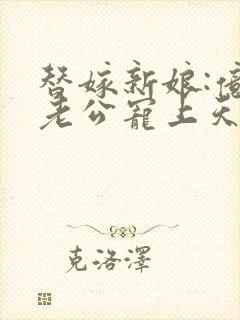 替嫁新娘:億
老公寵上天
克洛澤